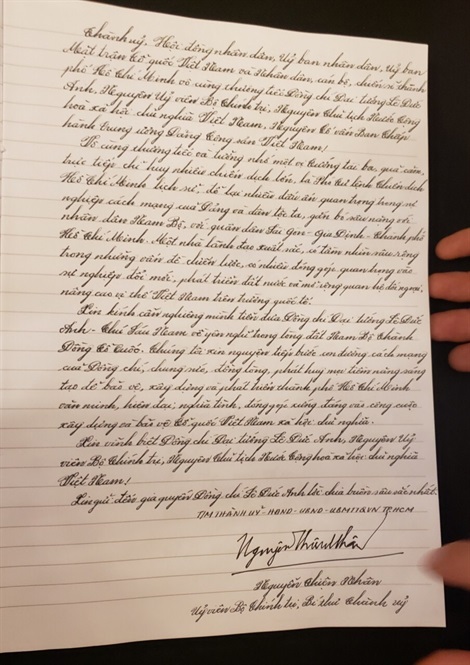 Thành ủy, Hội đồng nhân dân, Uỷ ban nhân dân, Uỷ ban
Mặt trận Tổ quốc Việt Nam và Nhân dân, cán bộ, chiến sĩ thành
phố Hồ Chí Minh vô cùng thương tiếc Đồng chí Đại tướng Lê Đức
Anh, Nguyên Uỷ viên Bộ Chính trị, Nguyên Chủ tịch Nước Cộng
hoà xã hội chủ nghĩa Việt Nam, Nguyên Cố vấn Ban Chấp
hành Trung ương Đảng Cộng sản Việt Nam!
Vô cùng thương tiếc và tưởng nhớ một vị tướng tài ba, quả cảm,
trực tiếp chỉ huy nhiều chiến dịch lớn, là Phó Tư lệnh Chiến dịch
Hồ Chí Minh lịch sử, để lại nhiều dấu ấn quan trọng trong sự
nghiệp cách mạng của Đảng và dân tộc ta, gắn bó sâu nặng với
nhân dân Nam Bộ, với quân dân Sài Gòn - Gia Định - Thành phố
Hồ Chí Minh. Một nhà lãnh đạo xuất sắc, có tầm nhìn sâu rộng
trong những vấn đề chiến lược, có nhiều đóng góp quan trọng vào
sự nghiệp đổi mới, phát triển đất nước và mở rộng quan hệ đối ngoại,
nâng cao vị thế Việt Nam trên trường quốc tế.
Xin kính cẩn nghiêng mình tiễn đưa Đồng chí Đại tướng Lê Đức
Anh - Chú Sáu Nam về yên nghỉ trong lòng đất Nam Bộ Thành
Đồng Tổ Quốc. Chúng tôi xin nguyện tiếp bước con đường cách mạng
của Đồng chí, chung sức, đồng lòng, phát huy mọi tiềm năng sáng
tạo để bảo vệ, xây dựng và phát triển thành phố Hồ Chí Minh
văn minh, hiện đại, nghĩa tình, đóng góp xứng đáng vào công cuộc
xây dựng và bảo vệ Tổ quốc Việt Nam xã hội chủ nghĩa.
Xin vĩnh biệt Đồng chí Đại tướng Lê Đức Anh, Nguyên Uỷ
viên Bộ Chính trị, Nguyên Chủ tịch Nước Cộng hoà xã hội chủ nghĩa
Việt Nam!
Xin gửi đến gia quyến Đồng chí Lê Đức Anh lời chia buồn sâu sắc nhất.
T/M THÀNH UỶ - HĐND - UBND - UBMTTQVN TP.HCM
Nguyễn Thiện Nhân
Nguyễn Thiện Nhân
Uỷ viên Bộ Chính trị, Bí thư Thành uỷ